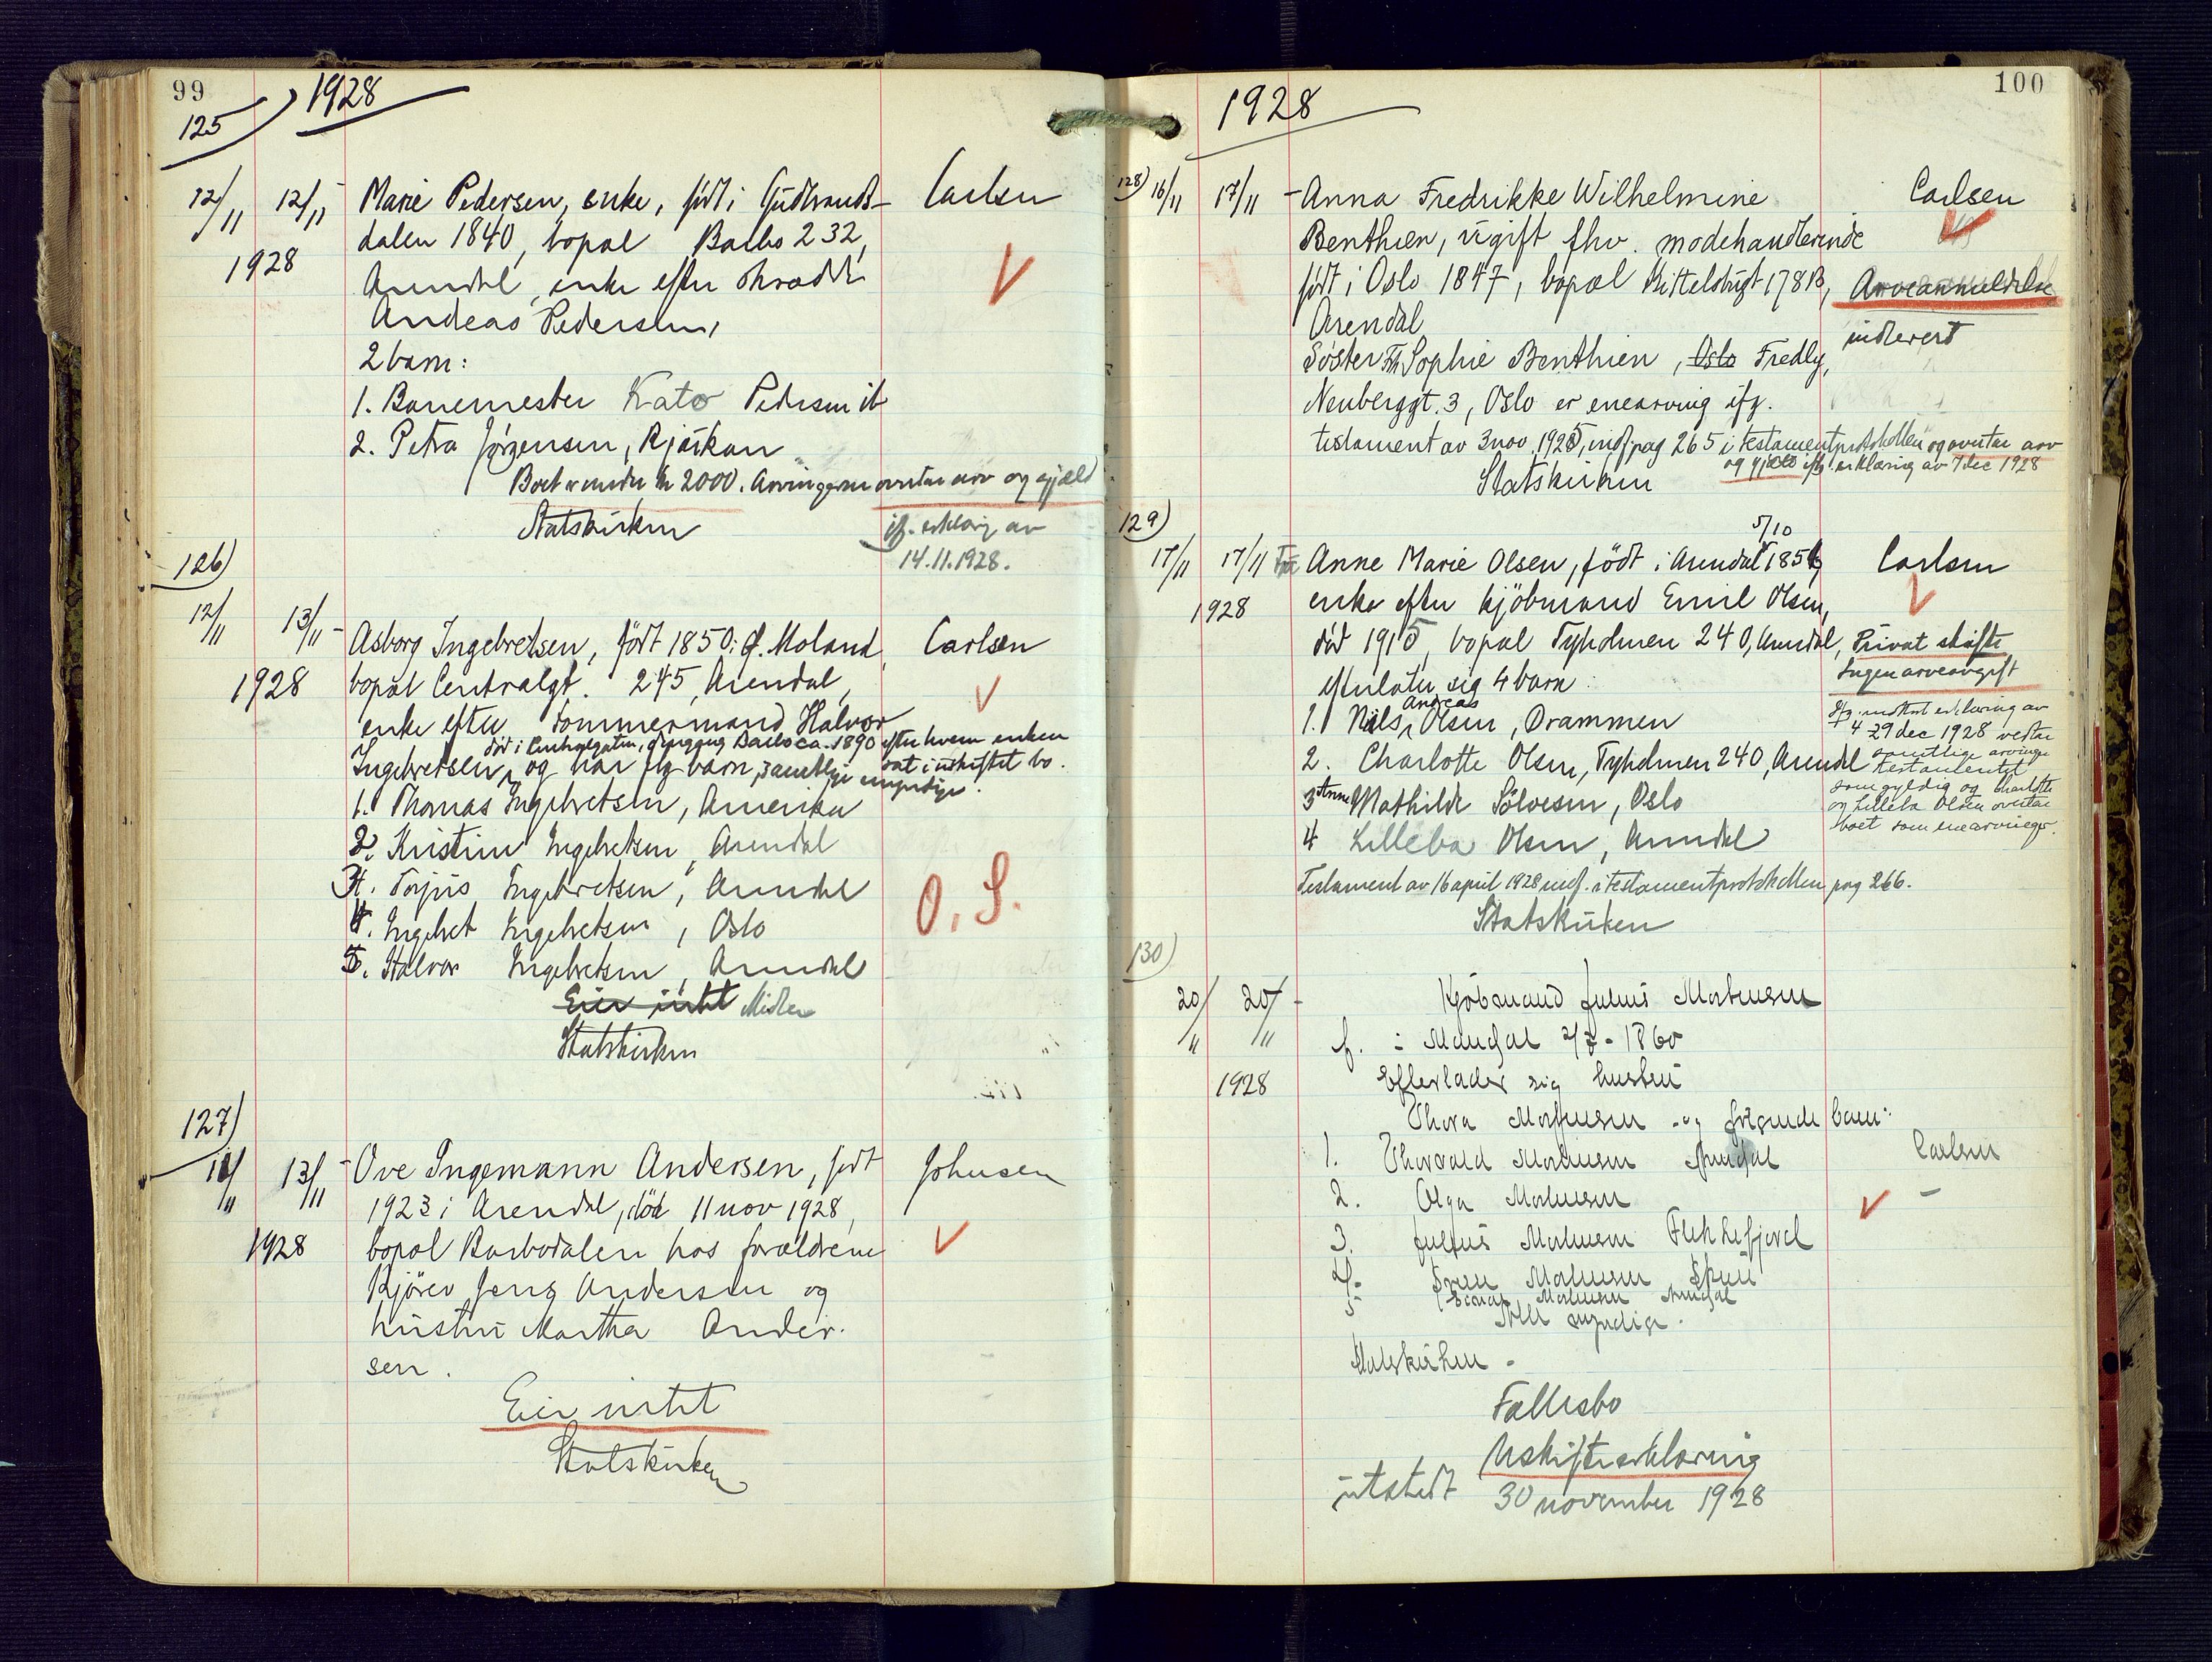 99
1928
125)
12/11 12/11 - Marie Pedersen, enke, født i Gudbrands-
Carlsen
dalen 1840, bopæl Barbo 232,
1928
Arendal, enke efter skrædder
Andeas Pedersen,
2 barn:
1. Banemester Kato Pedersen ib
2. Petra Jørgensen, Rjukan
Boet er under kr 2000. Arvingerne overtar arv og gjæld
Statskirken
ifg. erklæring av
14.11.1928.
126)
12/11 13/11 - Asborg Ingebretsen, født 1850 i Ø. Moland,
Carlsen
1928
bopæl Centralgt. 245, Arendal,
enke efter tømmermand Halvor
død i Centralgaten, dengang Barbo ca. 1890 efter hvem enken
Ingebretsen, og har fleg barn, samtlige myndige.
sat i uskiftet bo.
1. Thomas Ingebretsen, Amerika
2. Kristine Ingebretsen, Arendal
3. Torjus Ingebretsen, Arendal
O. S.
4. Ingebret Ingebretsen, Oslo
5. Halvor Ingebretsen, Arendal
Eier intet Midler
Statskirken
127)
11/11 13/11 - Ove Ingemann Andersen, født
Johnsen
1923 i Arendal, død 11 nov 1928,
1928
bopæl Barbodalen hos forældrene
Kjører Jens Andersen og
hustru Martha Ander-
sen.
Eier intet
Statskirken
100
1928
128) 16/11 17/11 - Anna Fredrikke Wilhelmine
Carlsen
Benthien, ugift fhv. modehandlerinde
født i Oslo 1847, bopæl Kittelsbugt 178 B,
Arveanmeldelse
Arendal
indlevert
Søster Frk Sophie Benthien, Oslo Fredly,
Neuberggt. 3, Oslo er enearving ifg.
testament av 3 nov. 1925, indf pag 265 i testamentprotokollen og overtar arv
og gjæld ifg erklæring av 7 dec 1928
Statskirken
129)
5/10
17/11 17/11 Fru Anne Marie Olsen, født i Arendal 1854,
Carlsen
1928
enke efter kjøbmand Emil Olsen,
død 1915, bopæl Tyholmen 240, Arendal,
Privat skifte
efterlater sig 4 barn:
Ingen arveavgift
Andreas
1. Nils Olsen, Drammen
Ifg. mottat erklæring av
4 29 dec 1928 vedtar
2. Charlotte Olsen, Tyholmen 240, Arendal
samtlige arvinger
testamentet
3 Anne Mathilde Sølvesen, Oslo
som gyldig og Charlotte
og Lilleba Olsen overtar
4 Lilleba Olsen, Arendal
boet som enearvinger.
Testament av 16 april 1928 indf. i testamentprotokollen pag 266.
Statskirken
130)
20/11 20/11 - Kjøbmand Julius Mortensen
f. i Mandal 2/7 - 1860
1928
Efterlader sig hustru
Thora Mortensen og følgende barn:
1. Thorvald Mortensen Arendal
Carlsen
2. Olga Mortensen
3. Julius Mortensen Flekkefjord
4. Sven Mortensen, Skien
5 Einar Mortensen Arendal
Alle myndige.
Statskirken -
Fællesbo
Uskifteerklæring
utstedt 30 november 1928